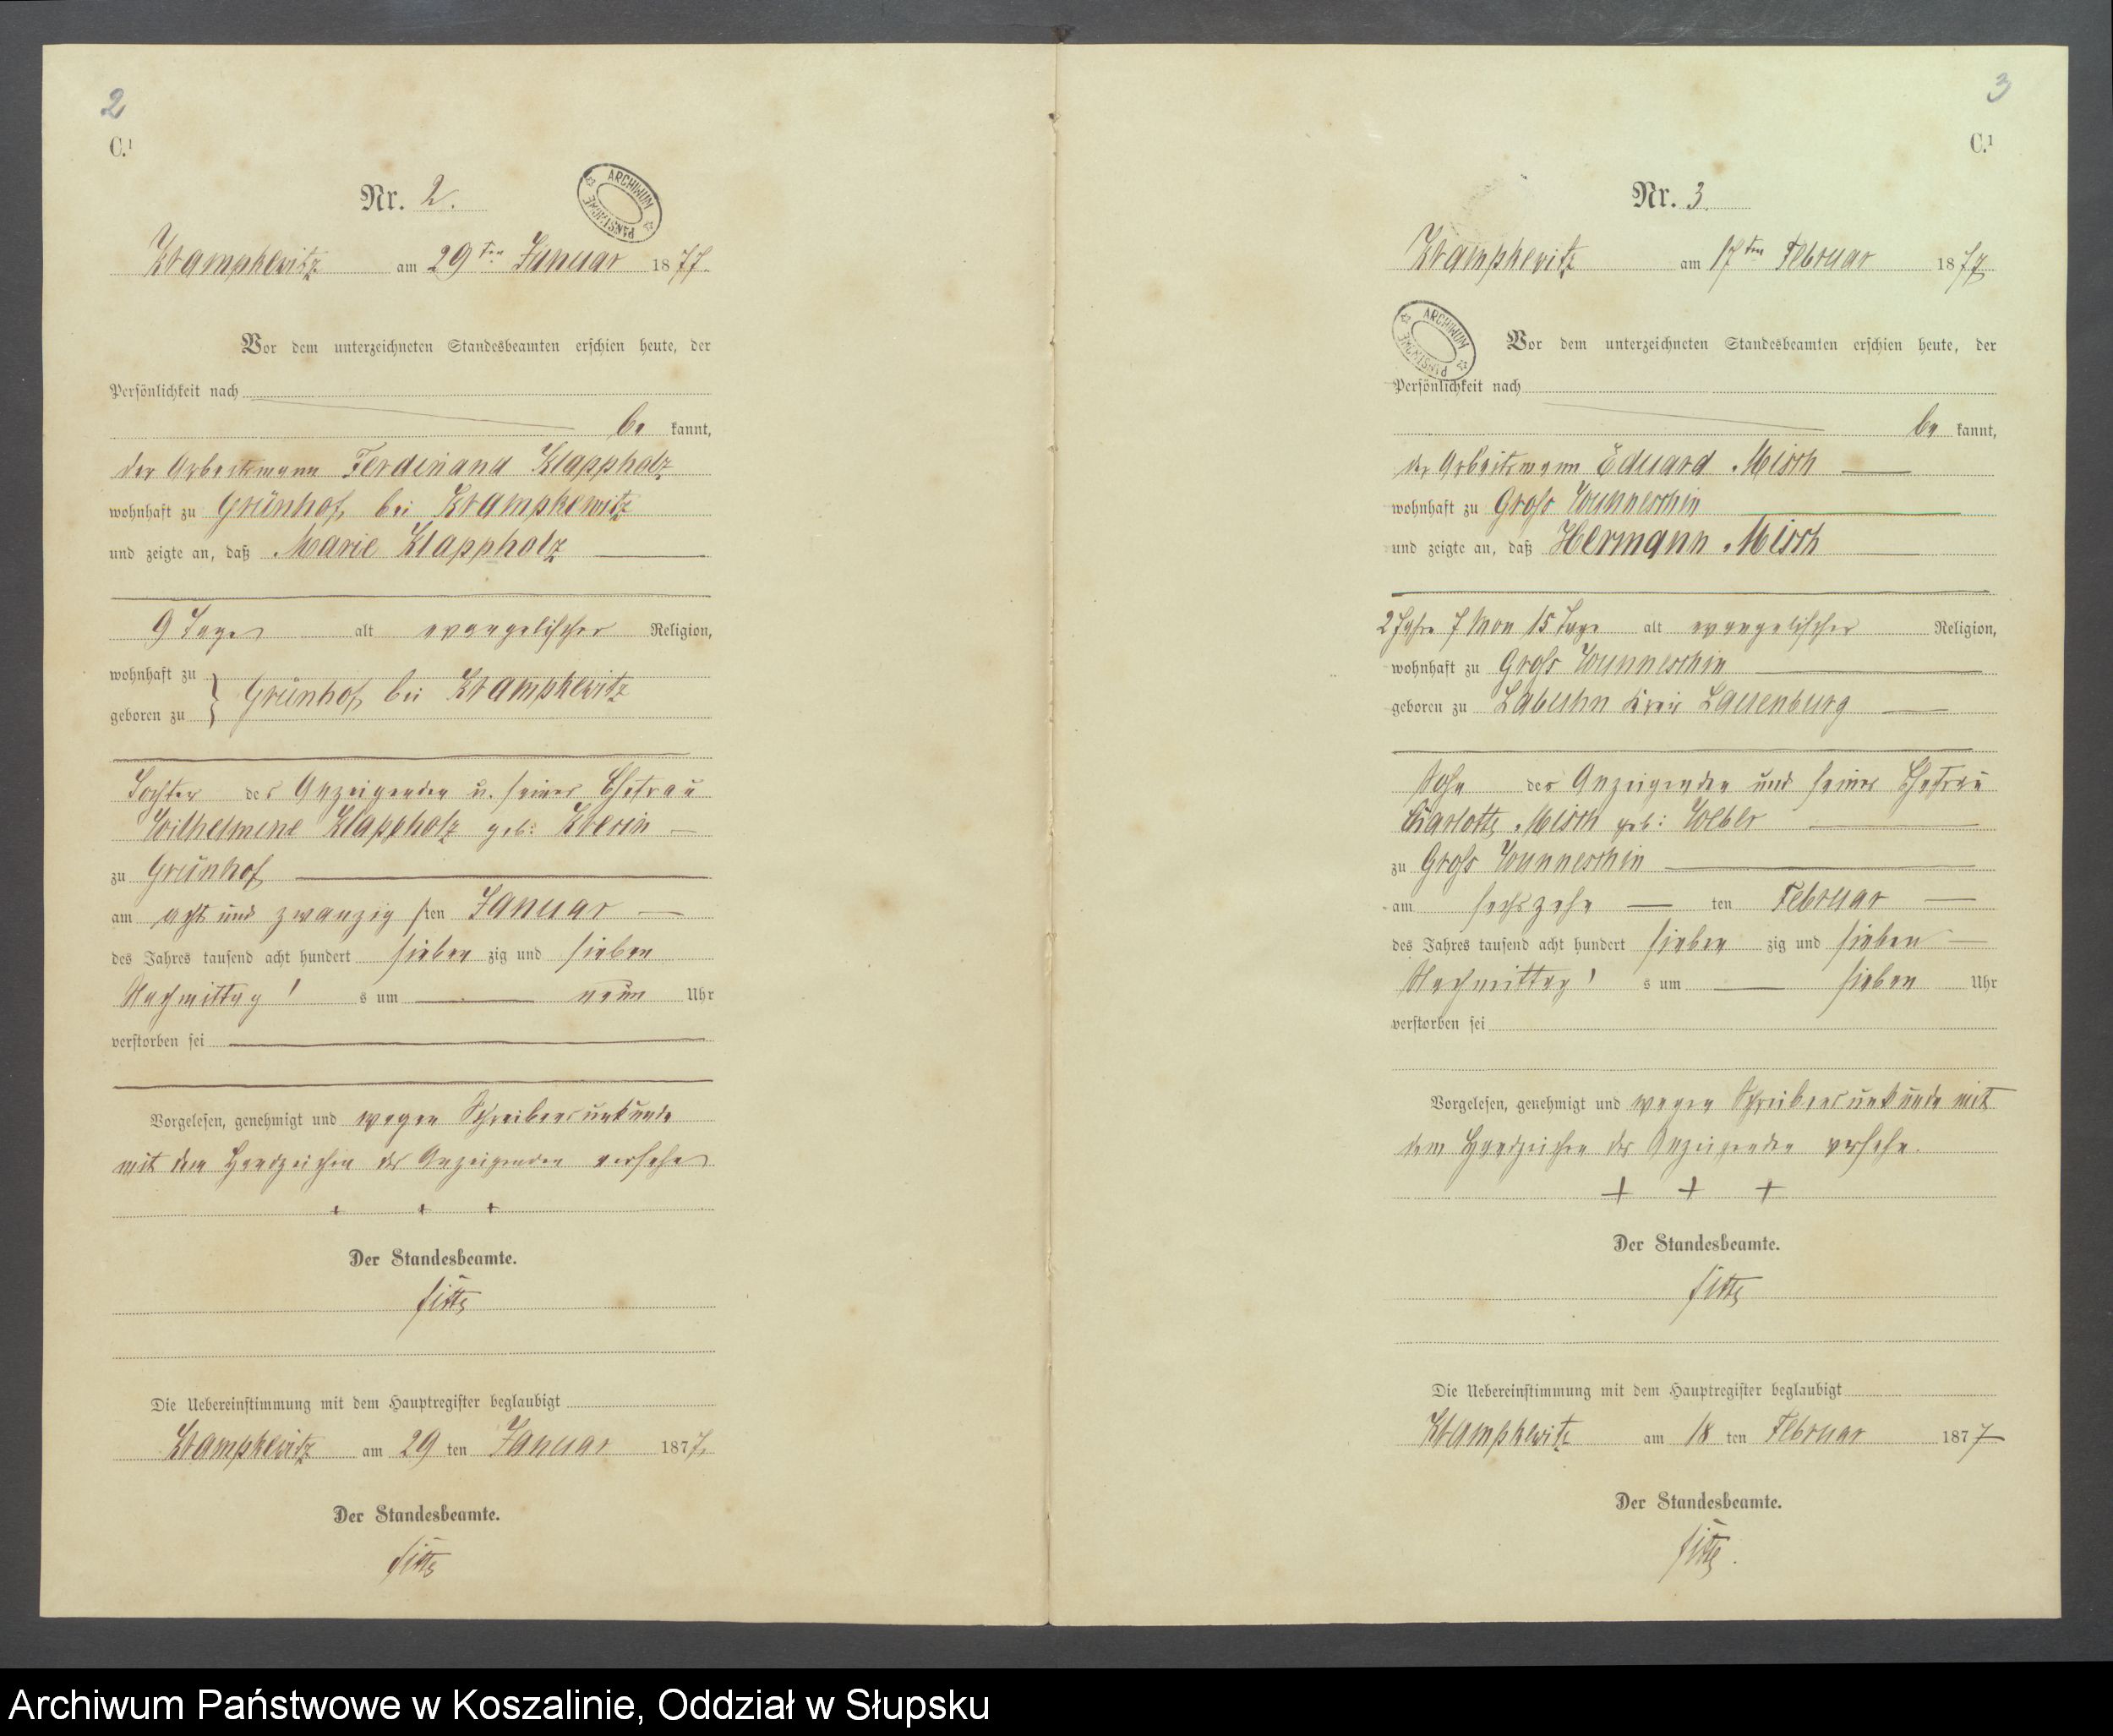 2
C.¹
Nr. 2.
ARCHIWUM PAŃSTWOWE
Krampkewitz am 29ten Januar 1877.
Vor dem unterzeichneten Standesbeamten erschien heute, der
Persönlichkeit nach
be kannt,
der Arbeitsmann Ferdinand Klappholz
wohnhaft zu Grünhof, bei Krampkewitz
und zeigte an, daß Marie Klappholz
9 Tage alt evangelischer Religion,
wohnhaft zu
geboren zu } Grünhof, bei Krampkewitz
Tochter des Anzeigenden u. seiner Ehefrau
Wilhelmine Klappholz geb:
zu Grünhof
am acht und zwanzigsten Januar
des Jahres tausend acht hundert sieben zig und sieben
Nachmittag s um neun Uhr
verstorben sei
Vorgelesen, genehmigt und wegen Schreibensunkunde
mit dem Handzeichen des Anzeigenden versehen
+ + +
Der Standesbeamte.
Die Uebereinstimmung mit dem Hauptregister beglaubigt
Krampkewitz am 29 ten Januar 1877.
Der Standesbeamte.
3
C.¹
Nr. 3.
Krampkewitz am 17ten Februar 1877
ARCHIWUM PAŃSTWOWE
Vor dem unterzeichneten Standesbeamten erschien heute, der
Persönlichkeit nach
be kannt,
der Arbeitsmann Eduard Misch
wohnhaft zu Groß Wunneschin
und zeigte an, daß Hermann Misch
2 Jahre 7 Mon 15 Tage alt evangelischer Religion,
wohnhaft zu Groß Wunneschin
geboren zu Labuhn Kreis Lauenburg
Sohn des Anzeigenden und seiner Ehefrau
Charlotte Misch geb:
zu Groß Wunneschin
am sechszehn ten Februar
des Jahres tausend acht hundert sieben zig und sieben
Nachmittag s um sieben Uhr
verstorben sei
Vorgelesen, genehmigt und wegen Schreibensunkunde mit
dem Handzeichen des Anzeigenden versehn.
+ + +
Der Standesbeamte.
Die Uebereinstimmung mit dem Hauptregister beglaubigt
Krampkewitz am 18 ten Februar 1877
Der Standesbeamte.
Archiwum Państwowe w Koszalinie, Oddział w Słupsku